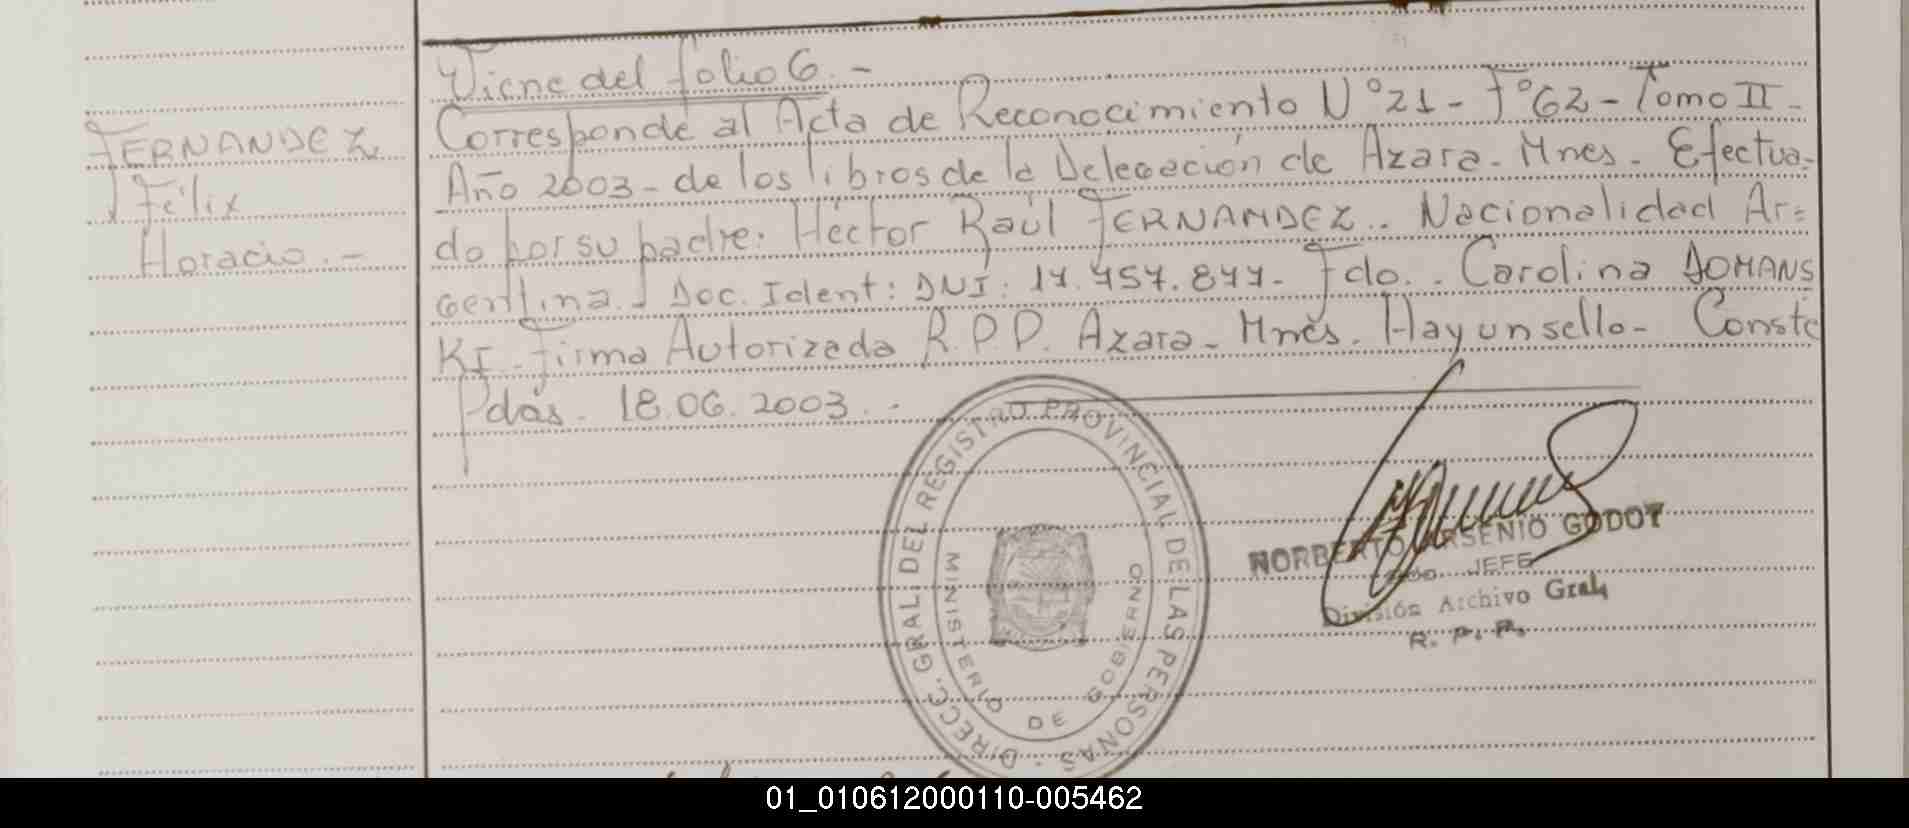 Viene del folio 6.-
FERNANDEZ
Félix
Horacio.-
Corresponde al Acta de Reconocimiento Nº21- Fº62- Tomo II-
Año 2003- de los libros de la Delegación de Azara- Mnes. Efectua-
do por su padre: Héctor Raúl FERNANDEZ.. Nacionalidad Ar=
gentina.- Doc. Ident: DNI: 17.457.877- Fdo.. Carolina DOMANS
KI- Firma Autorizada R.P.P. Azara- Mnes. Hay un sello- Conste
Pdas. 18.06.2003.-
DIRECC. GRAL. DEL REGISTRO PROVINCIAL DE LAS PERSONAS
MINISTERIO DE GOBIERNO
NORBERTO ARSENIO GODOY
JEFE
División Archivo Gral,
R. P. P.
01_010612000110-005462